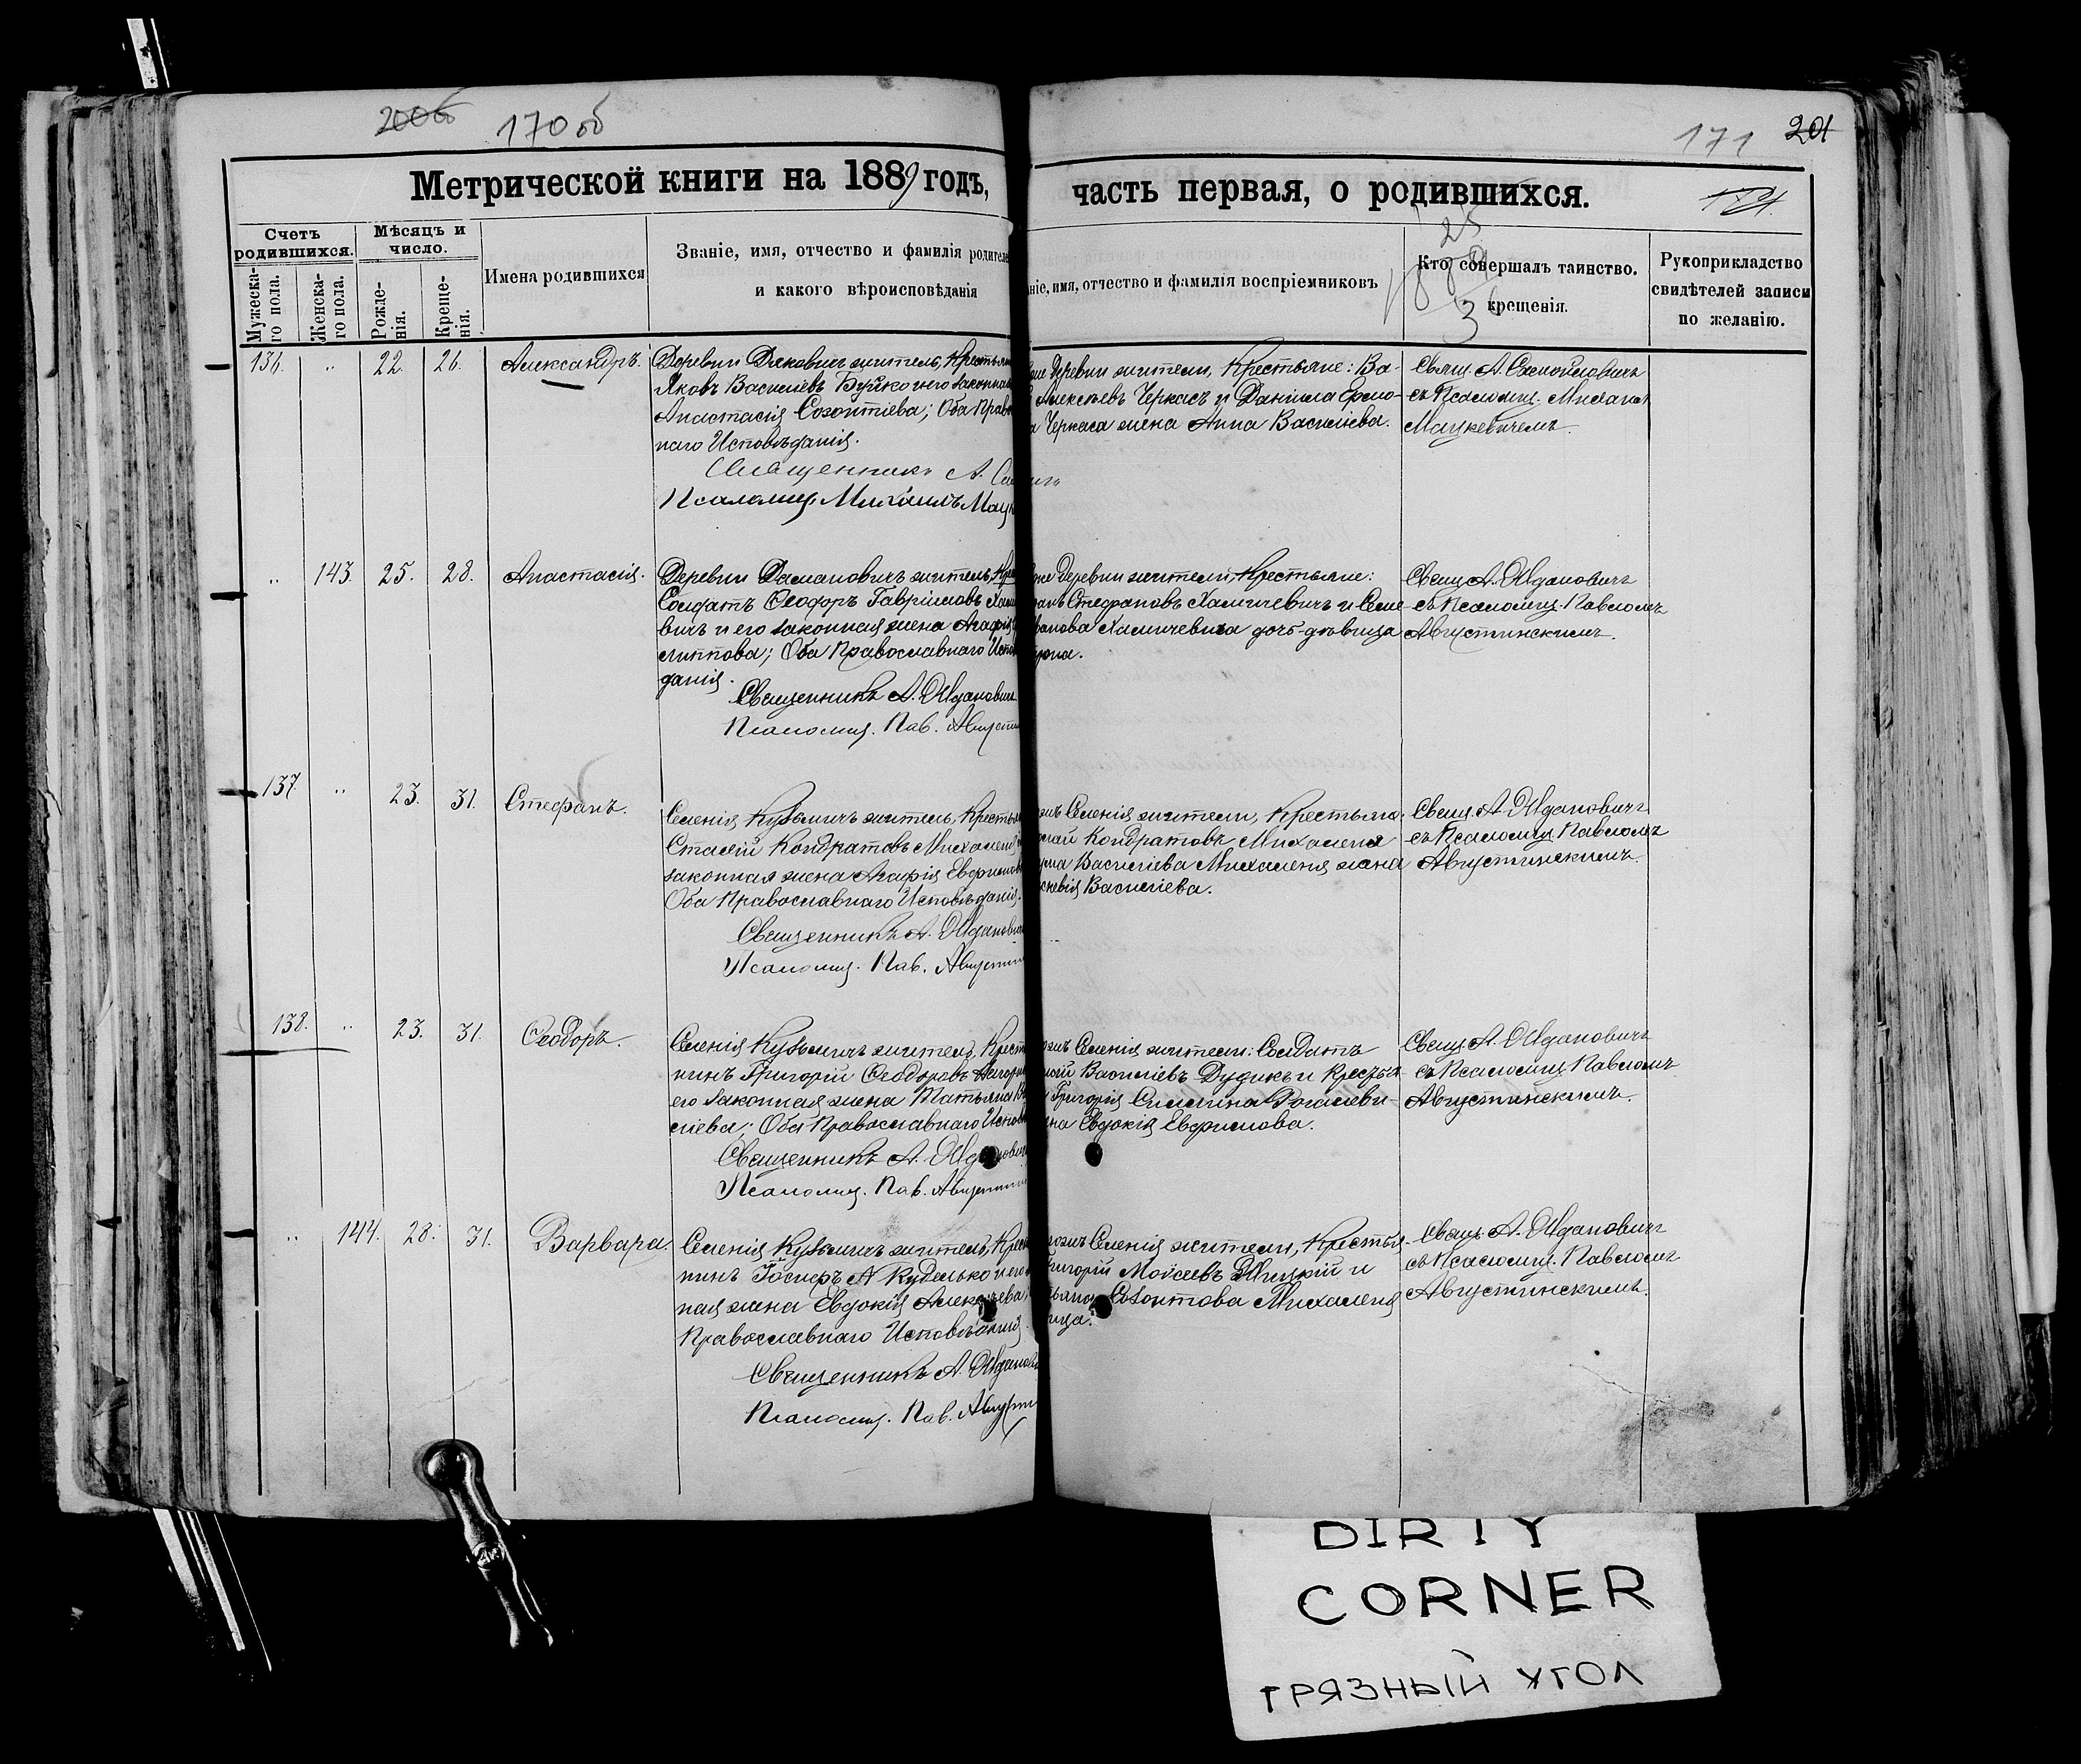 200об 170 об
171 201
Метрической книги на 1889 годъ, часть первая, о родившихся.
171.
Счетъ родившихся.
Мѣсяцъ и число.
Мужеска-го пола.
Женска-го пола.
Рожде-нія.
Креще-нія.
Имена родившихся
Званіе, имя, отчество и фамилія родителе
и какого вѣроисповѣданія
ніе, имя, отчество и фамилія воспріемниковъ
Кто совершалъ таинство.
крещенія.
Рукоприкладство
свидѣтелей записи
по желанію.
136. „ 22. 26. Александръ.
Деревни Дяковичъ житель, Крестьян
Яковъ Василіевъ Буйко и его законная
Анастасія Созонтіева; Оба Прав
наго Исповѣданія.
Священникъ А.
Псаломщ. Михаилъ Мац
же Деревни жители, Крестьяне: Ва-
Алексѣевъ Черкасъ и Даніила
а Черкаса жена Анна Василіева.
Свящ. А.
съ Псаломщ. Михаил
Мацкевичемъ.
„ 143. 25. 28. Анастасія.
Деревни житель, Кре
Солдатъ Ѳеодоръ Гавріиловъ Хам
вичъ и его законная жена Агафія
липпова; Оба Православнаго Испов
данія.
Священникъ А. Жданович
Псаломщ. Пав. Августи
же Деревни жители, Крестьяне:
Стефановъ Хамичевичъ и
Хамичевича дочь-дѣвица
Свящ. А. Ждановичъ
съ Псаломщ. Павломъ
Августинскимъ.
137. „ 23. 31. Стефанъ.
Селенія Кузьмичъ житель, Крестья
Кондратовъ Михалени
законная жена Агафія
Оба Православнаго Исповѣданія.
Священникъ А. Жданович
Псаломщ. Пав. Августин
Селенія жители, Крестьяне:
лай Кондратовъ Михаленя
Василіева Михаленя жена
Василіева.
Свящ. А. Ждановичъ
съ Псаломщ. Павломъ
Августинскимъ.
138. „ 23. 31. Ѳеодоръ.
Селенія Кузьмичъ житель, Крест
нинъ Григорій Ѳеодоровъ
его законная жена Татьяна
сліева; Оба Православнаго Испов
Священникъ А. Жданович
Псаломщ. Пав. Августин
Селенія жители: Солдатъ
Василіевъ Дудикъ и Крестья
Григорія
на Евдокія Евфимова.
Свящ. А. Ждановичъ
съ Псаломщ. Павломъ
Августинскимъ.
„ 144. 28. 31. Варвара.
Селенія Кузьмичъ житель, Крест
нинъ Іосифъ А. Куделько и его
ная жена Евдокія Алексѣева,
Православнаго Исповѣданія.
Священникъ А. Жданови
Псаломщ. Пав. Августи
Селенія жители, Крестья
ригорій Моисеевъ и
Созонтова Михаленя
ица.
Свящ. А. Ждановичъ
съ Псаломщ. Павломъ
Августинскимъ.
DIRTY
CORNER
ГРЯЗНЫЙ УГОЛ